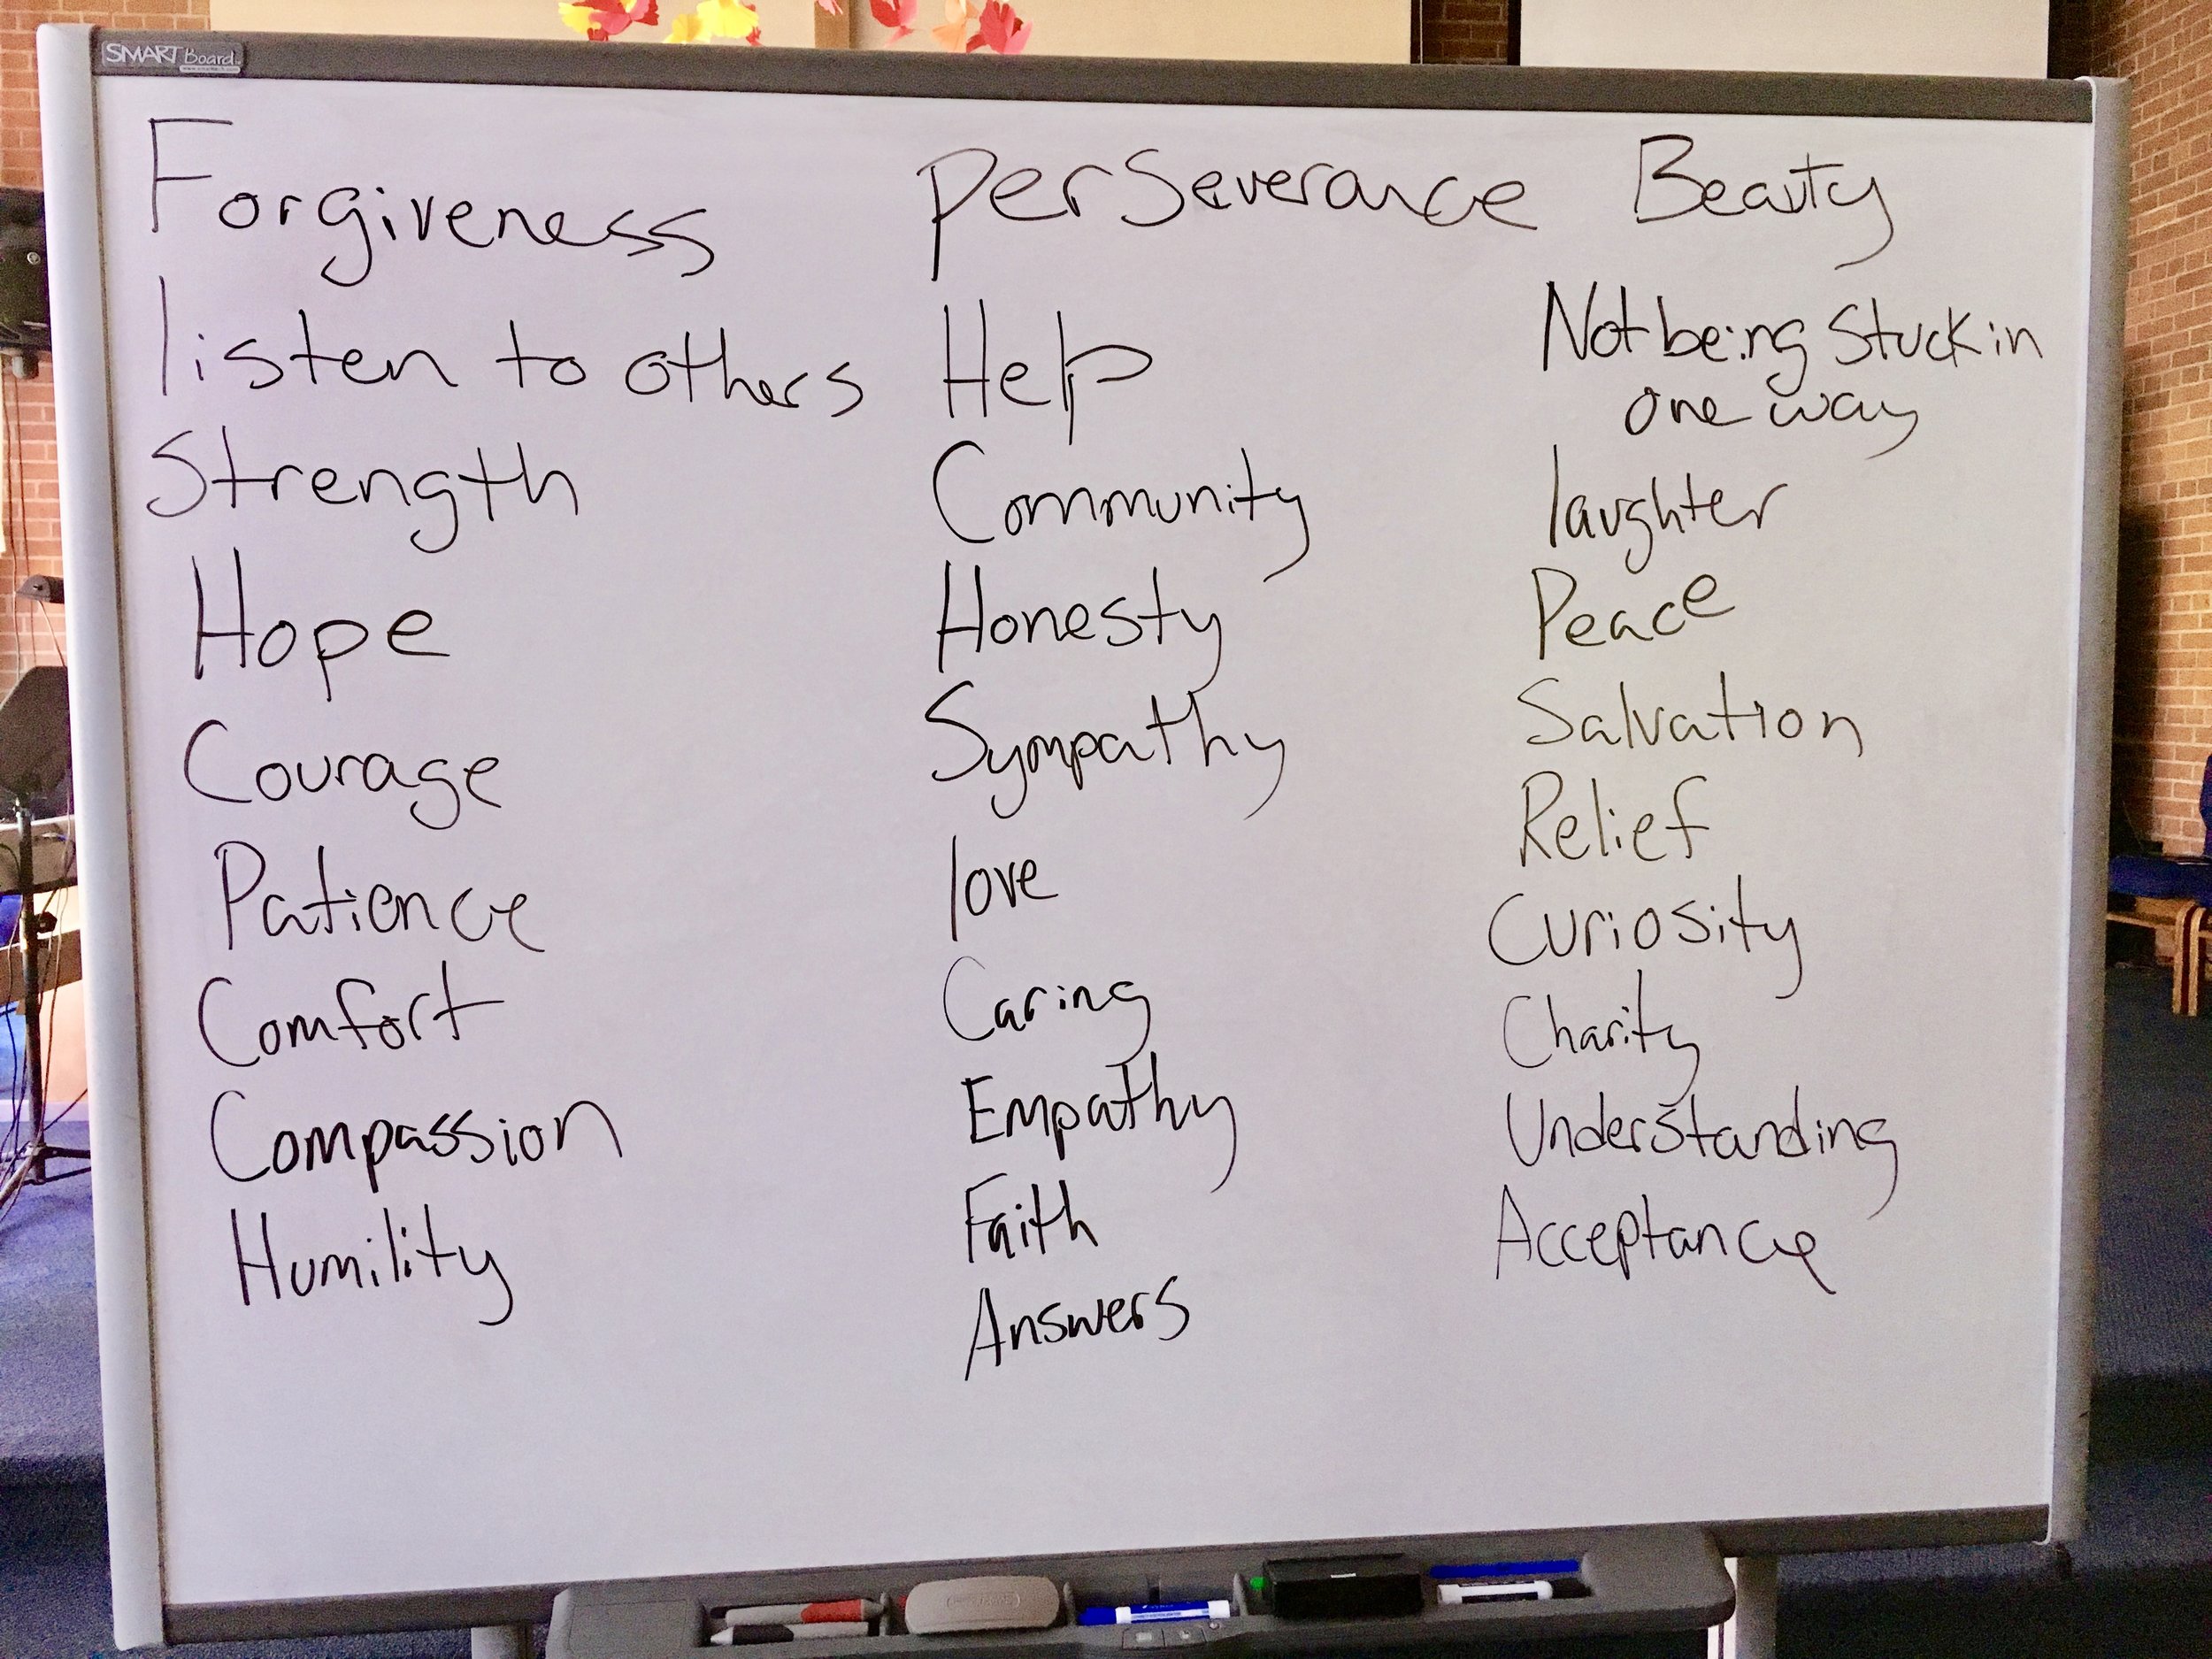 SMART Board
Forgiveness
listen to others
Strength
Hope
Courage
Patience
Comfort
Compassion
Humility
Perseverance
Help
Community
Honesty
Sympathy
love
Caring
Empathy
Faith
Answers
Beauty
Not being stuck in
one way
laughter
Peace
Salvation
Relief
Curiosity
Charity
Understanding
Acceptance